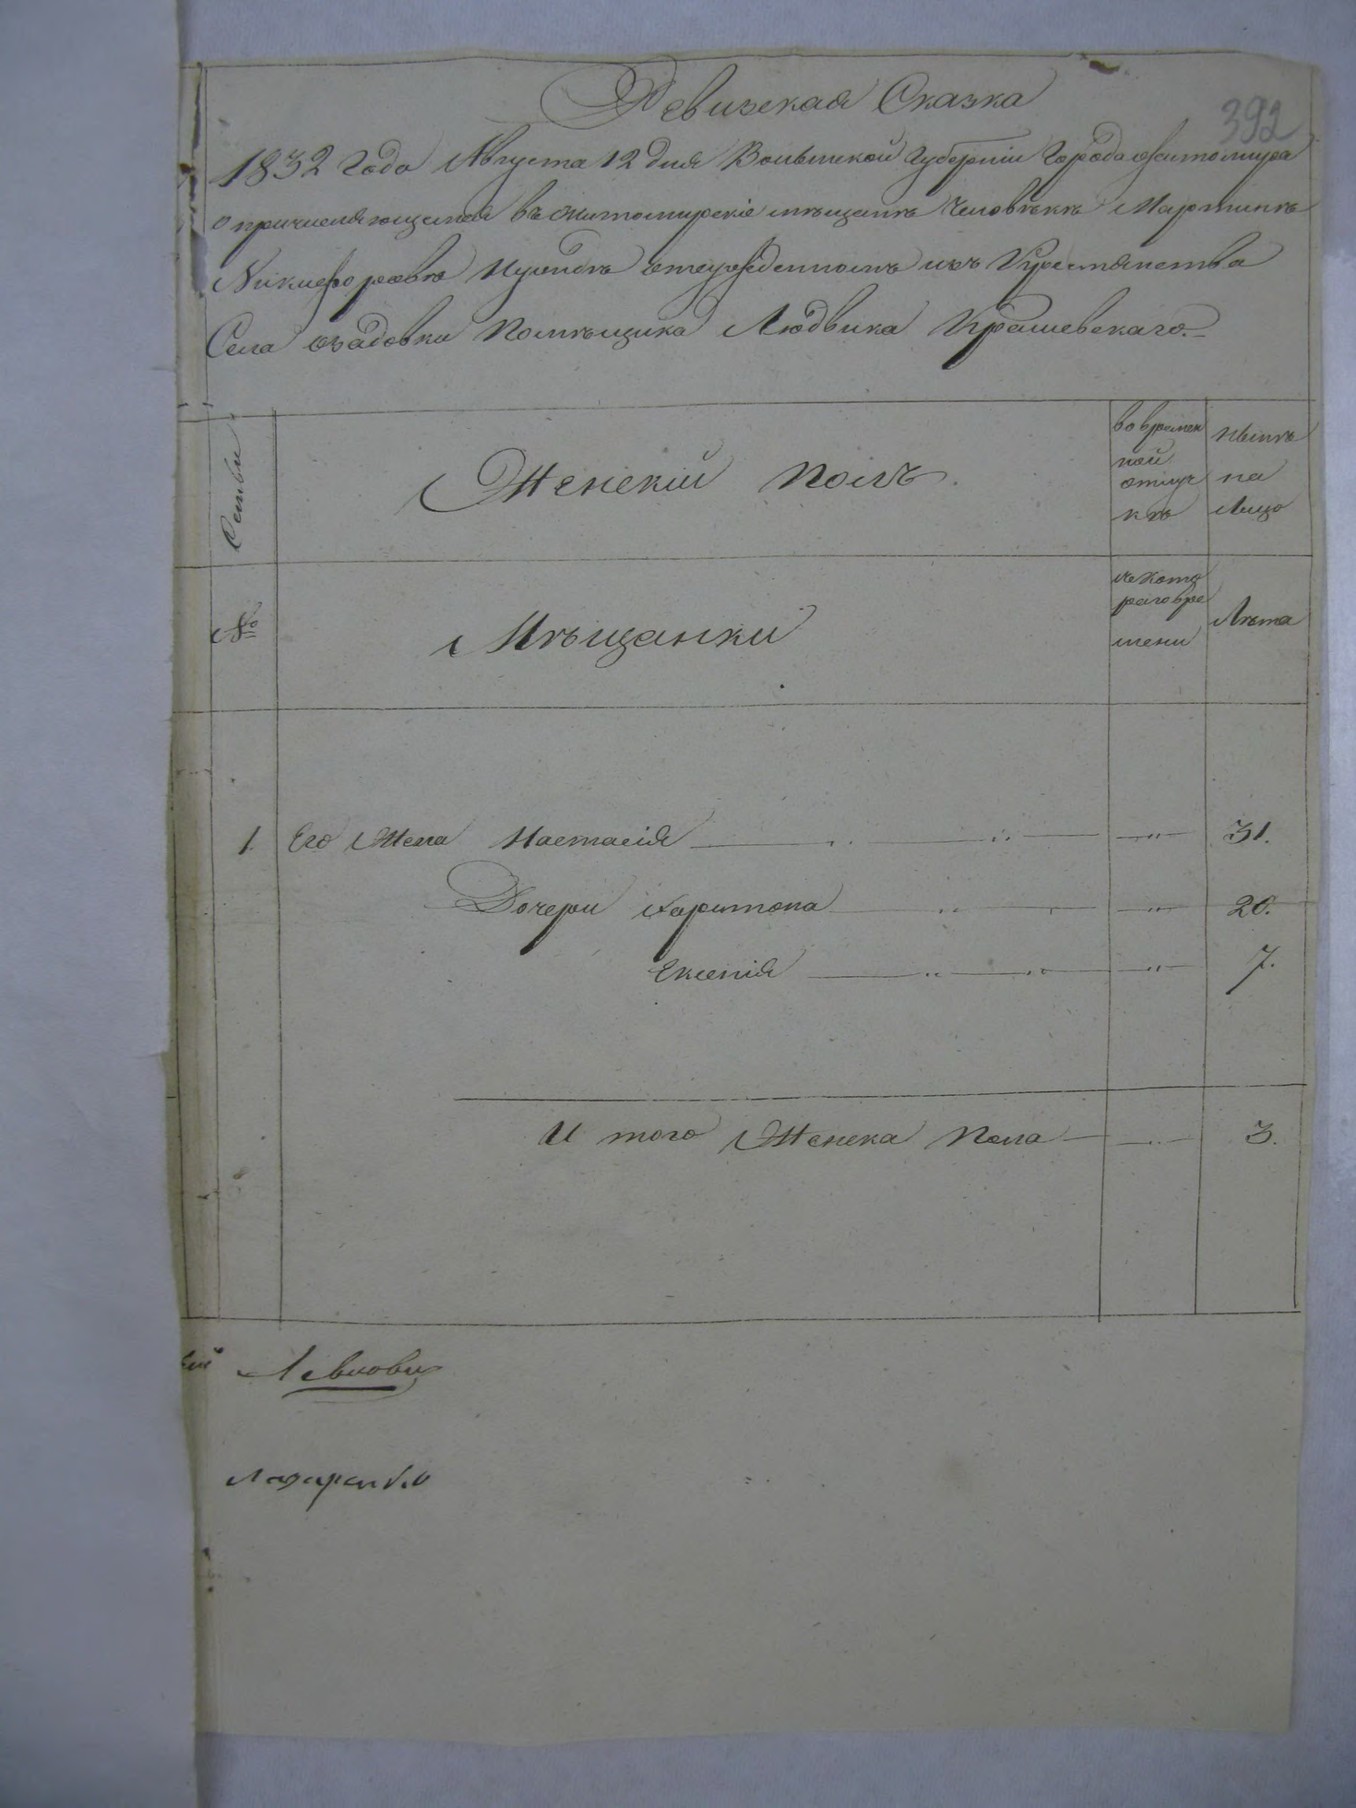 Ревизская Сказка
392
1832 года Августа 12 дня Волынской Губернiи Города Житомира
о причисляющемся въ Житомирскiе мещане Человекъ Мартинъ
Никифоровъ отсужденномъ изъ Крестьянства
Села Садовки Помещика Людвика Крашевскаго.
Семьи
Женскiй полъ.
во времен
ной
отлуч
ке
ныне
на
лицо
№
Мещанки
съ кото
раго вре
мени
Лета
1. Его Жена Настасiя 〃 31.
Дочери Харитона 〃 20.
Ксенiя 〃 7.
И того Женска Пола 3.
Лазаренко